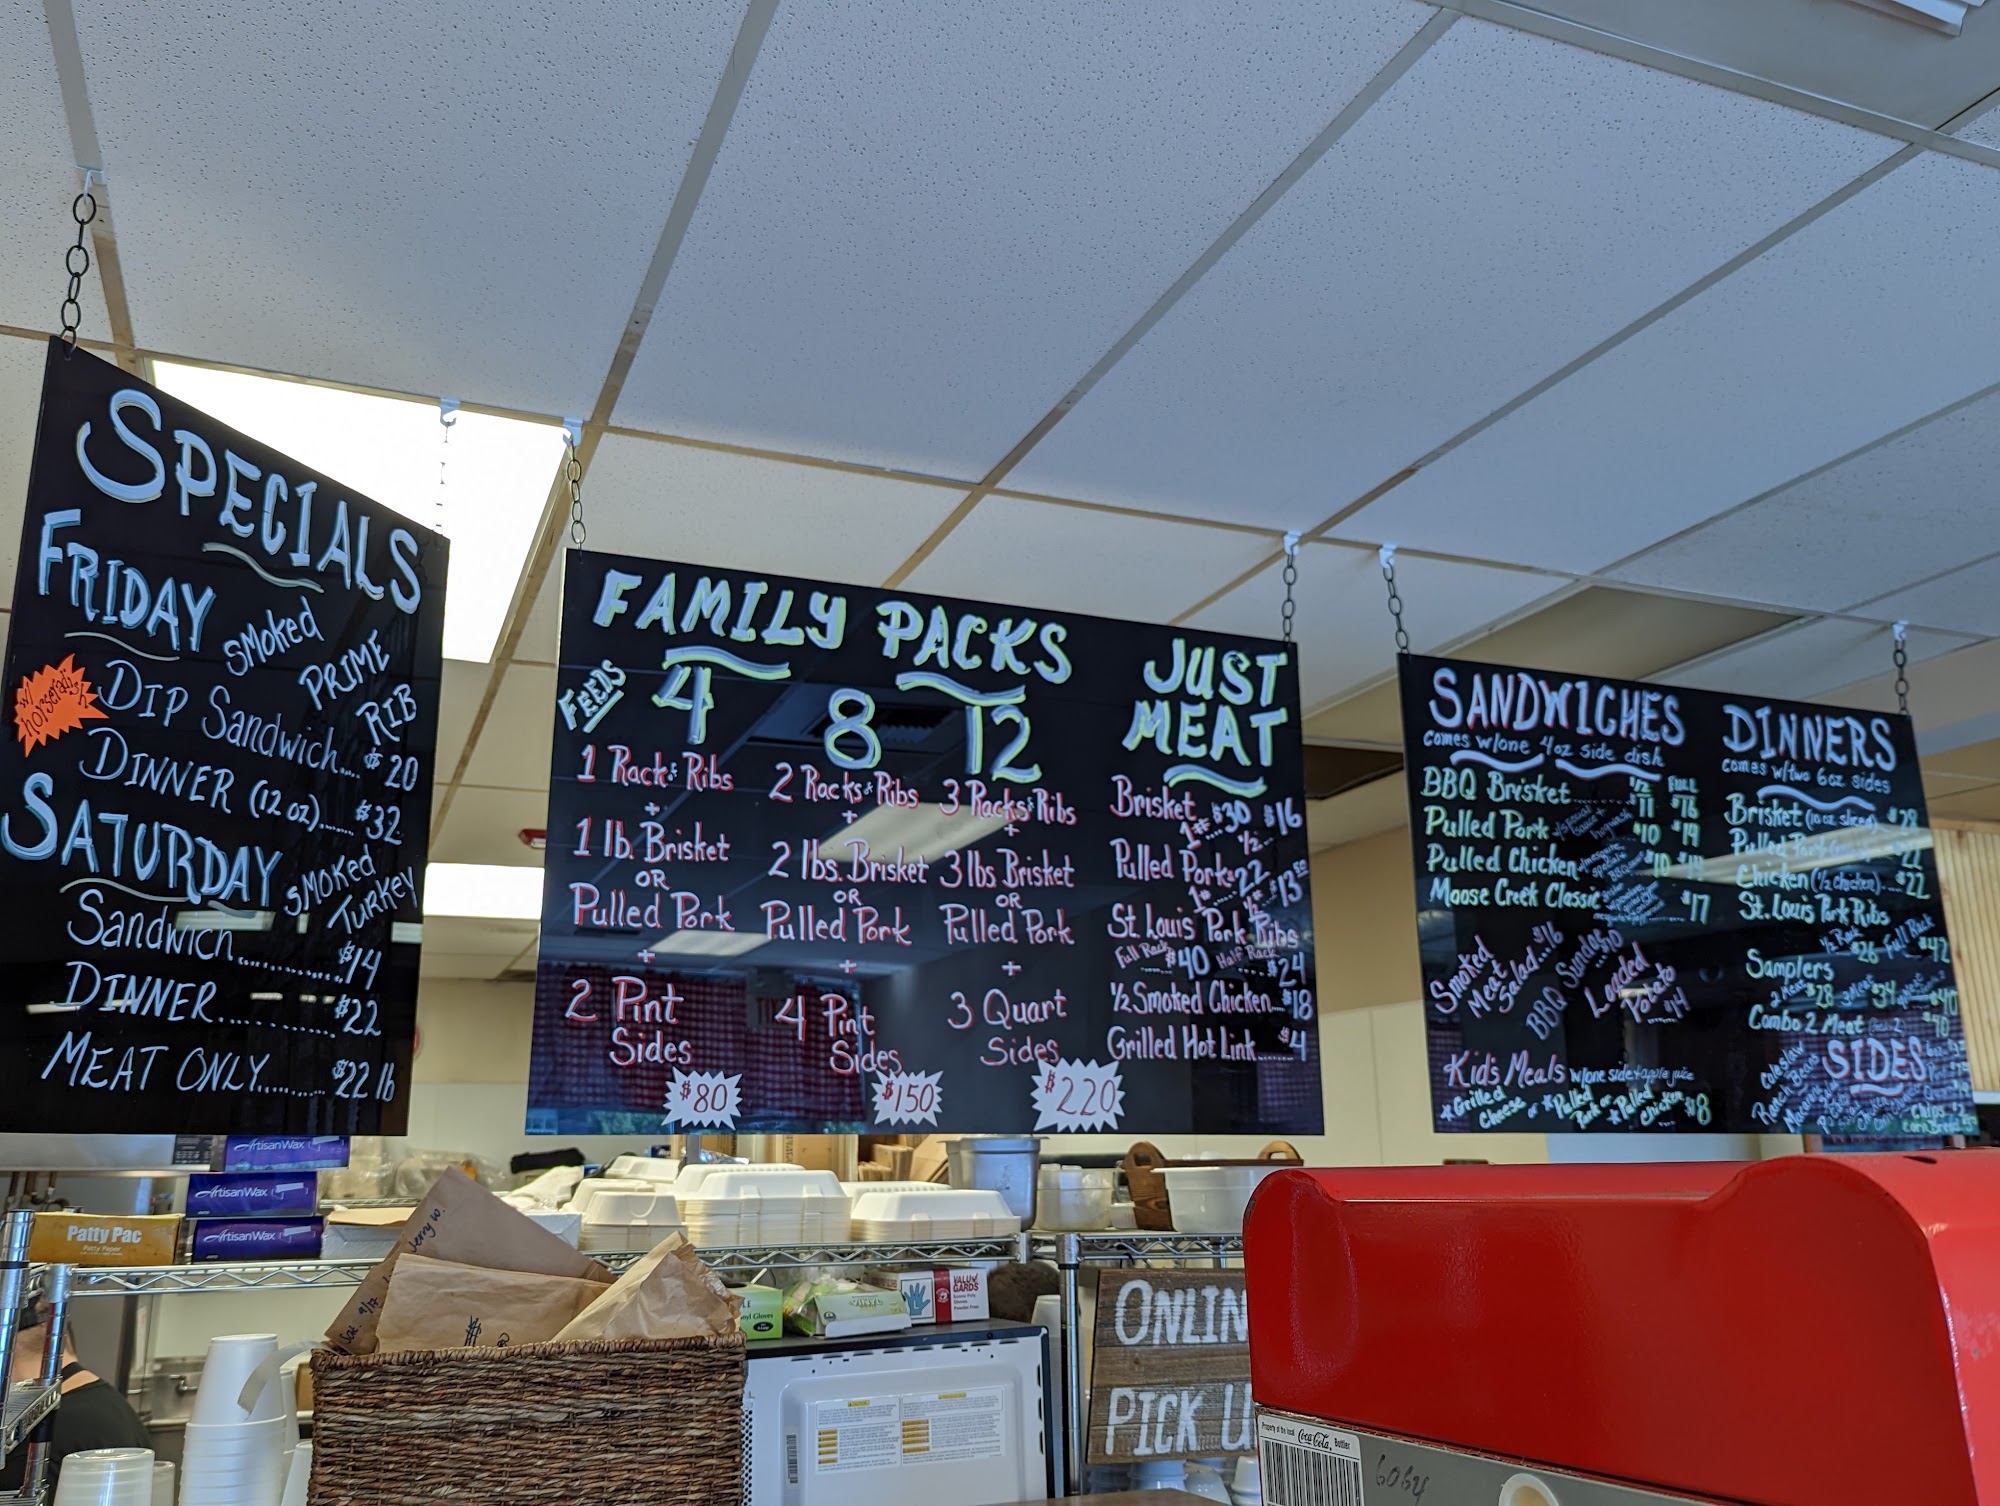 SPECIALS
FRIDAY SMOKED PRIME RIB
w/ horseradish
DIP SANDWICH.... $20
DINNER (12 oz)....... $32
SATURDAY SMOKED TURKEY
SANDWICH............. $14
DINNER............ $22
MEAT ONLY.......... $22 lb
FAMILY PACKS
FEEDS 4 8 12
1 Rack of Ribs
+
1 lb. Brisket
OR
Pulled Pork
+
2 Pint
Sides
$80
2 Racks of Ribs
+
2 lbs. Brisket
OR
Pulled Pork
+
4 Pint
Sides
$150
3 Racks of Ribs
+
3 lbs. Brisket
OR
Pulled Pork
+
3 Quart
Sides
$220
JUST
MEAT
Brisket
1# ... $30 ½ .. $16
Pulled Pork
1# .. $22 ½ # $13.50
St. Louis Pork Ribs
Full Rack ..... $40 Half Rack .... $24
½ Smoked Chicken.... $18
Grilled Hot Link....... $4
SANDWICHES
comes w/one 4oz side dish
½ FULL
BBQ Brisket ........ $11 $16
Pulled Pork $10 $14
Pulled Chicken $10 $14
Moose Creek Classic $17
Smoked Meat Salad $16
BBQ Sundae $10
Loaded Potato $14
Kid's Meals w/one side + apple juice
*Grilled Cheese or *Pulled Pork or *Pulled Chicken $8
DINNERS
comes w/two 6oz sides
Brisket (10 oz sliced) $28
Pulled Pork $22
Chicken (½ chicken).... $22
St. Louis Pork Ribs
½ Rack $26 Full Rack $42
Samplers
2 Meat $28 3 Meat $34 $40
Combo 2 Meat
SIDES
Coleslaw
Ranch Beans
Chips
Cornbread
ArtisanWax
ArtisanWax
ArtisanWax
Patty Pac
Patty Paper
Jerry W.
Sat. 9/17
Vinyl Gloves
VALU
GARDS
ONLIN
PICK U
Property of the local Coca-Cola Bottler
6064